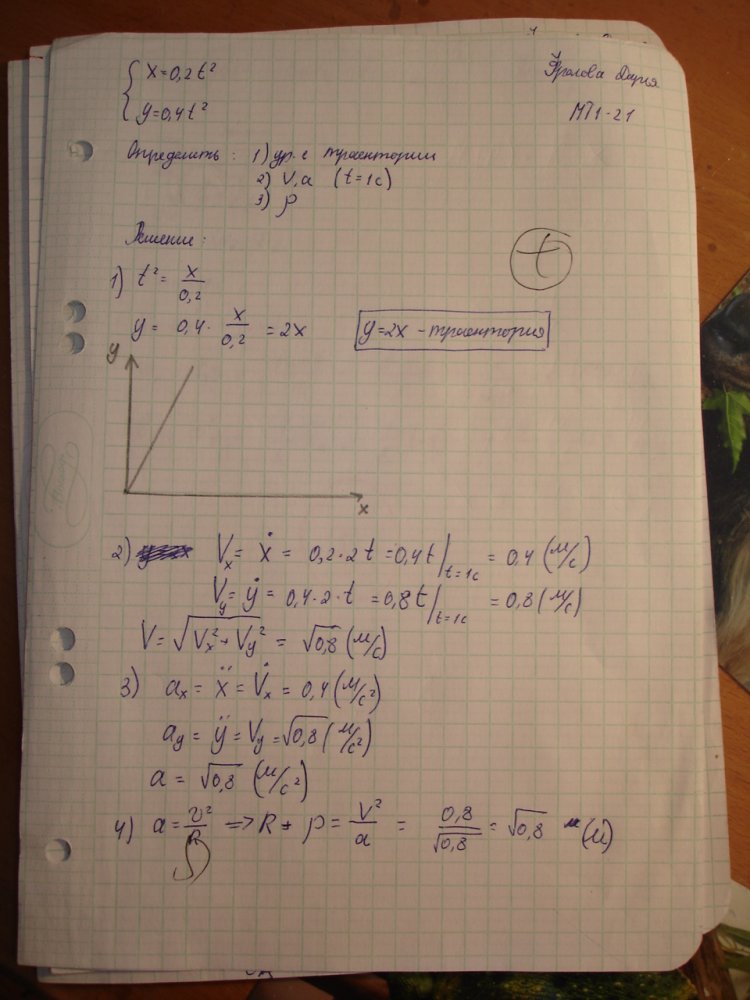 x=0,2t²
y=0,4t²
Фролова Дарья
МТ1-21
Определить: 1) ур-е траектории
2) V, a (t=1c)
3) ρ
Решение:
+
1) t² = x/0,2
y = 0,4 · x/0,2 = 2x
y=2x - траектория
y
x
2) Vx = ẋ = 0,2·2t = 0,4t|t=1c = 0,4 (м/с)
Vy = ẏ = 0,4·2·t = 0,8t|t=1c = 0,8 (м/с)
V = √(Vx²+Vy²) = √0,8 (м/с)
3) ax = ẍ = V̇x = 0,4 (м/с²)
ay = ÿ = Vy = √0,8 (м/с²)
a = √0,8 (м/с²)
4) a = v²/R => R + ρ = V²/a = 0,8/√0,8 = √0,8 (м)